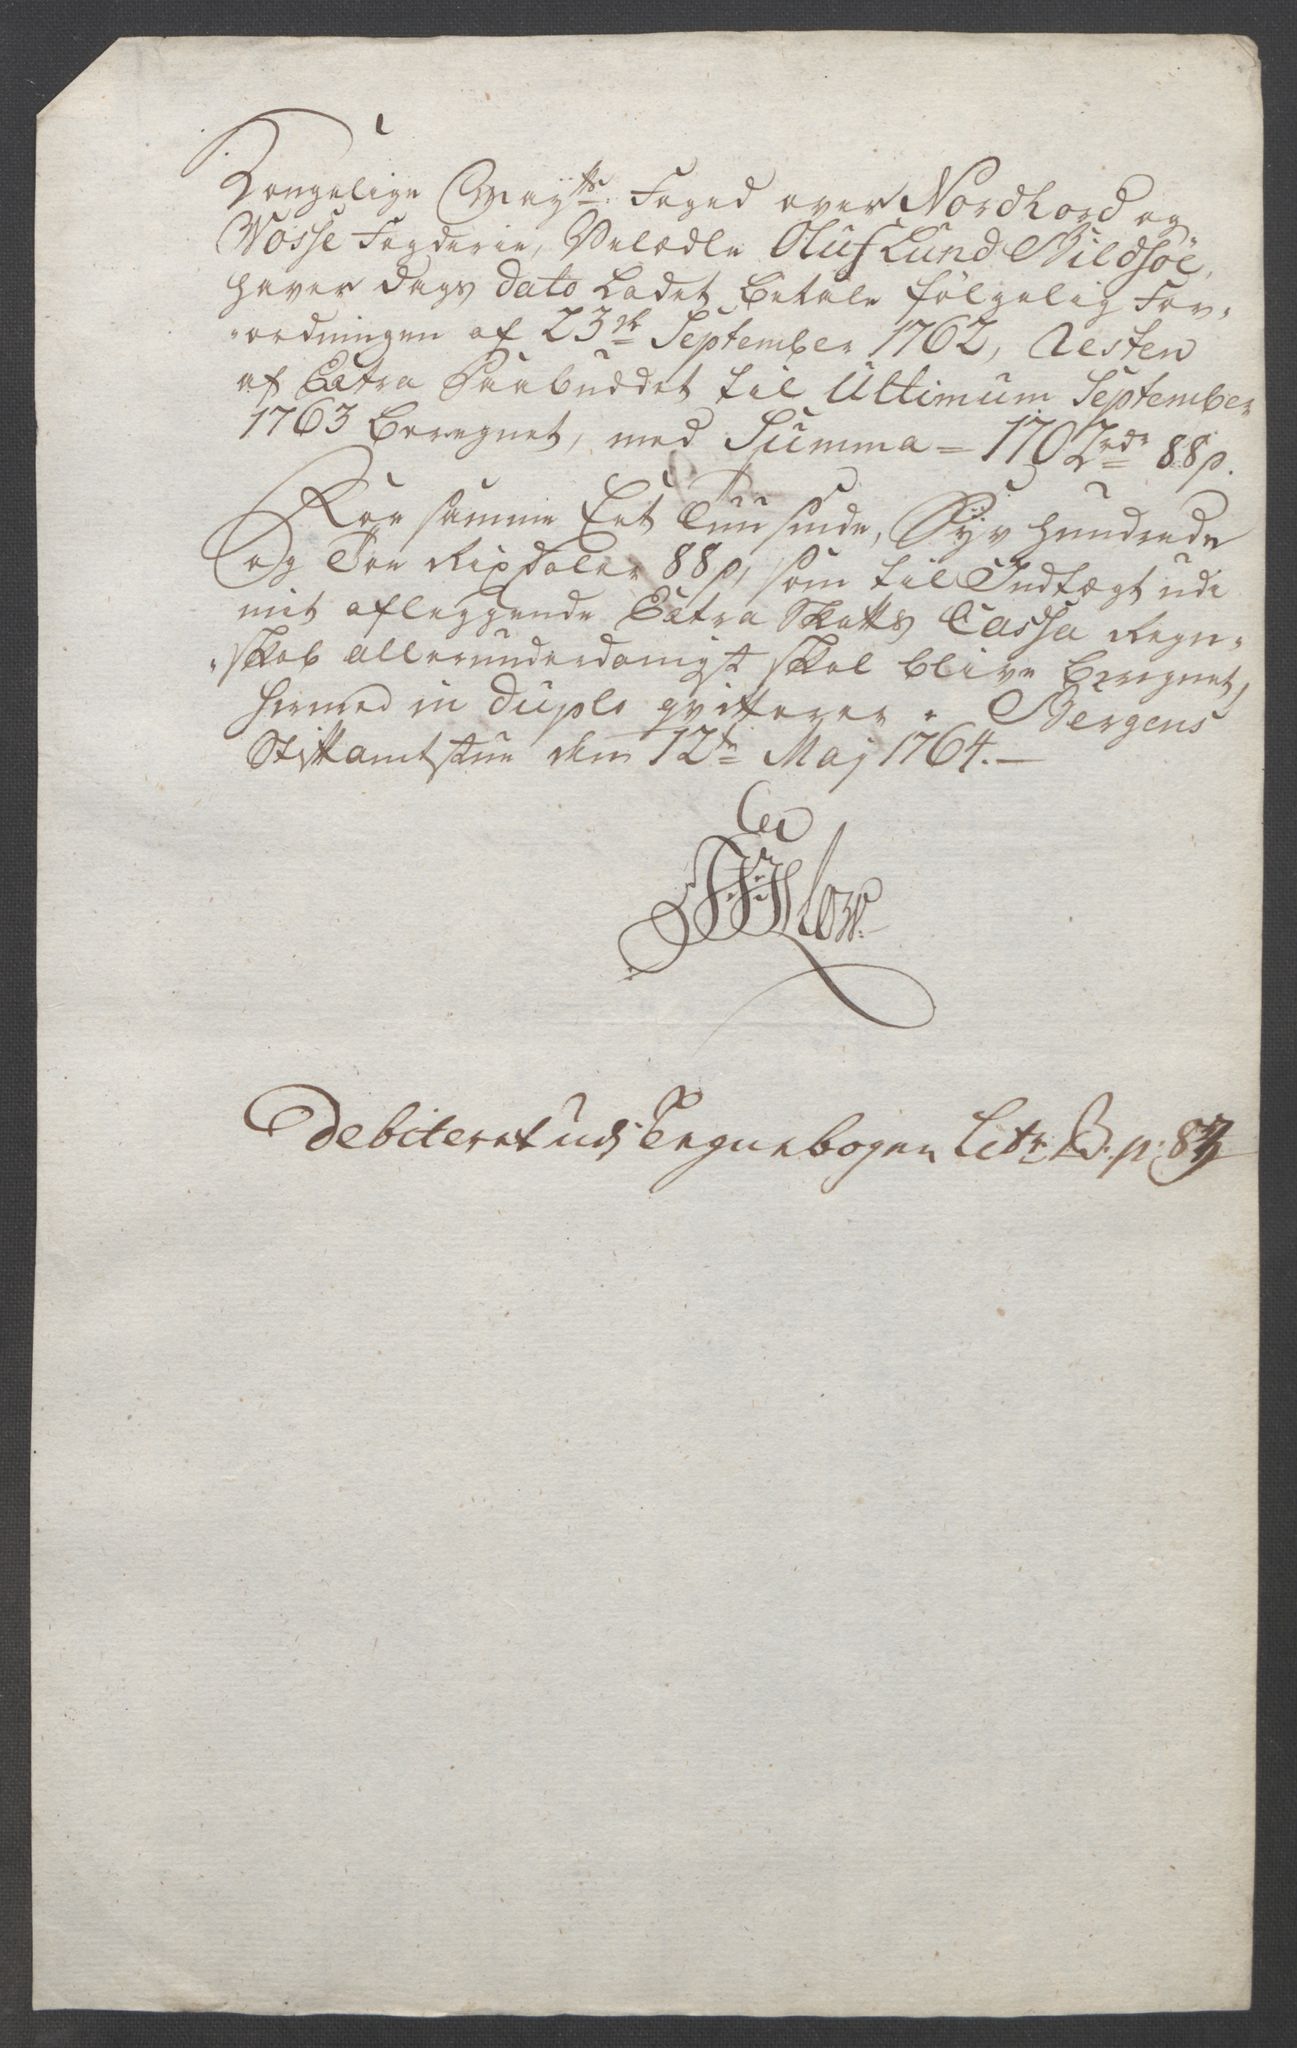 Kongelige Mayts: Foged over Nordhord og
Vosse Fogderie, Velædle Oluf Lund Bildsöe,
haver dags dato ladet betale følgelig For-
-ordningen af 23de September 1762, Resten
af Extra Paabuddet til Ultimum September
1763 beregnet, med Summa = 1702 rdr 88 s.
For samme Eet Tuusinde, Syv hundrede
og Toe Rixdaler 88 s, som til Indtægt udi
mit aflæggende Extra Skatts Cassa Regn-
-skab allerunderdanigst skal blive beregnet,
hermed in duplo qvitterer. Bergens
Stiftamtstue den 12te Maj 1764. —
Debiteret udi Tegnebogen Litr. B. p: 87